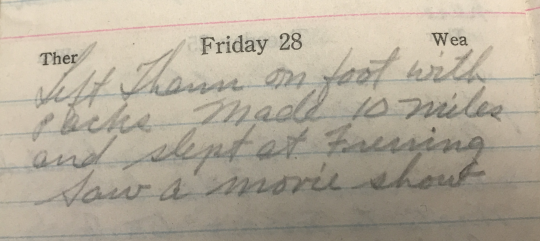 Ther Friday 28 Wea
Left Thann on foot with
packs Made 10 miles
and slept at
Saw a movie show